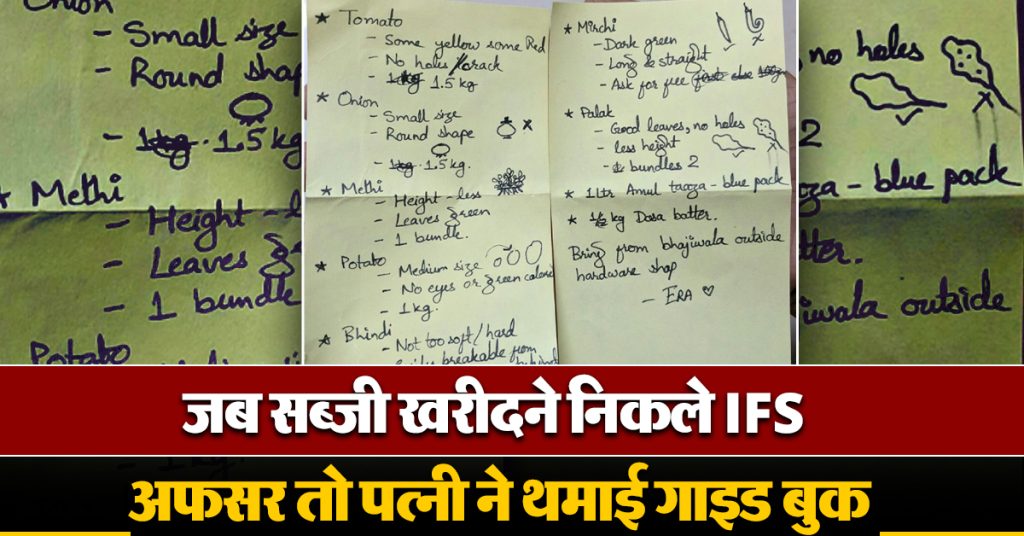 Onion
- Small size
- Round shap
- 1kg. 1.5 K
* Methi
- Height - le
- Leaves g
- 1 bundle
Potato
* Tomato
- Some yellow some Red
- No holes/crack
- 1kg 1.5 kg
* Onion
- Small size
- Round shape
x
- 1kg. 1.5 kg.
* Methi
- Height - less
- Leaves green
- 1 bundle.
* Potato
- Medium size
- No eyes or green calore
- 1 kg.
* Bhindi
- Not too soft/hard
breakable from
* Mirchi
- Dark green
- Long & straight
- Ask for free
* Palak
- Good leaves, no holes
- less height
- bundles 2
* 1 ltr Amul taaza - blue pack
* kg Dosa batter.
Bring from bhajiwala outside
hardware shop
- ERA ♡
no holes
2
za - blue pack
tter.
iwala outside
जब सब्जी खरीदने निकले IFS
अफसर तो पत्नी ने थमाई गाइड बुक